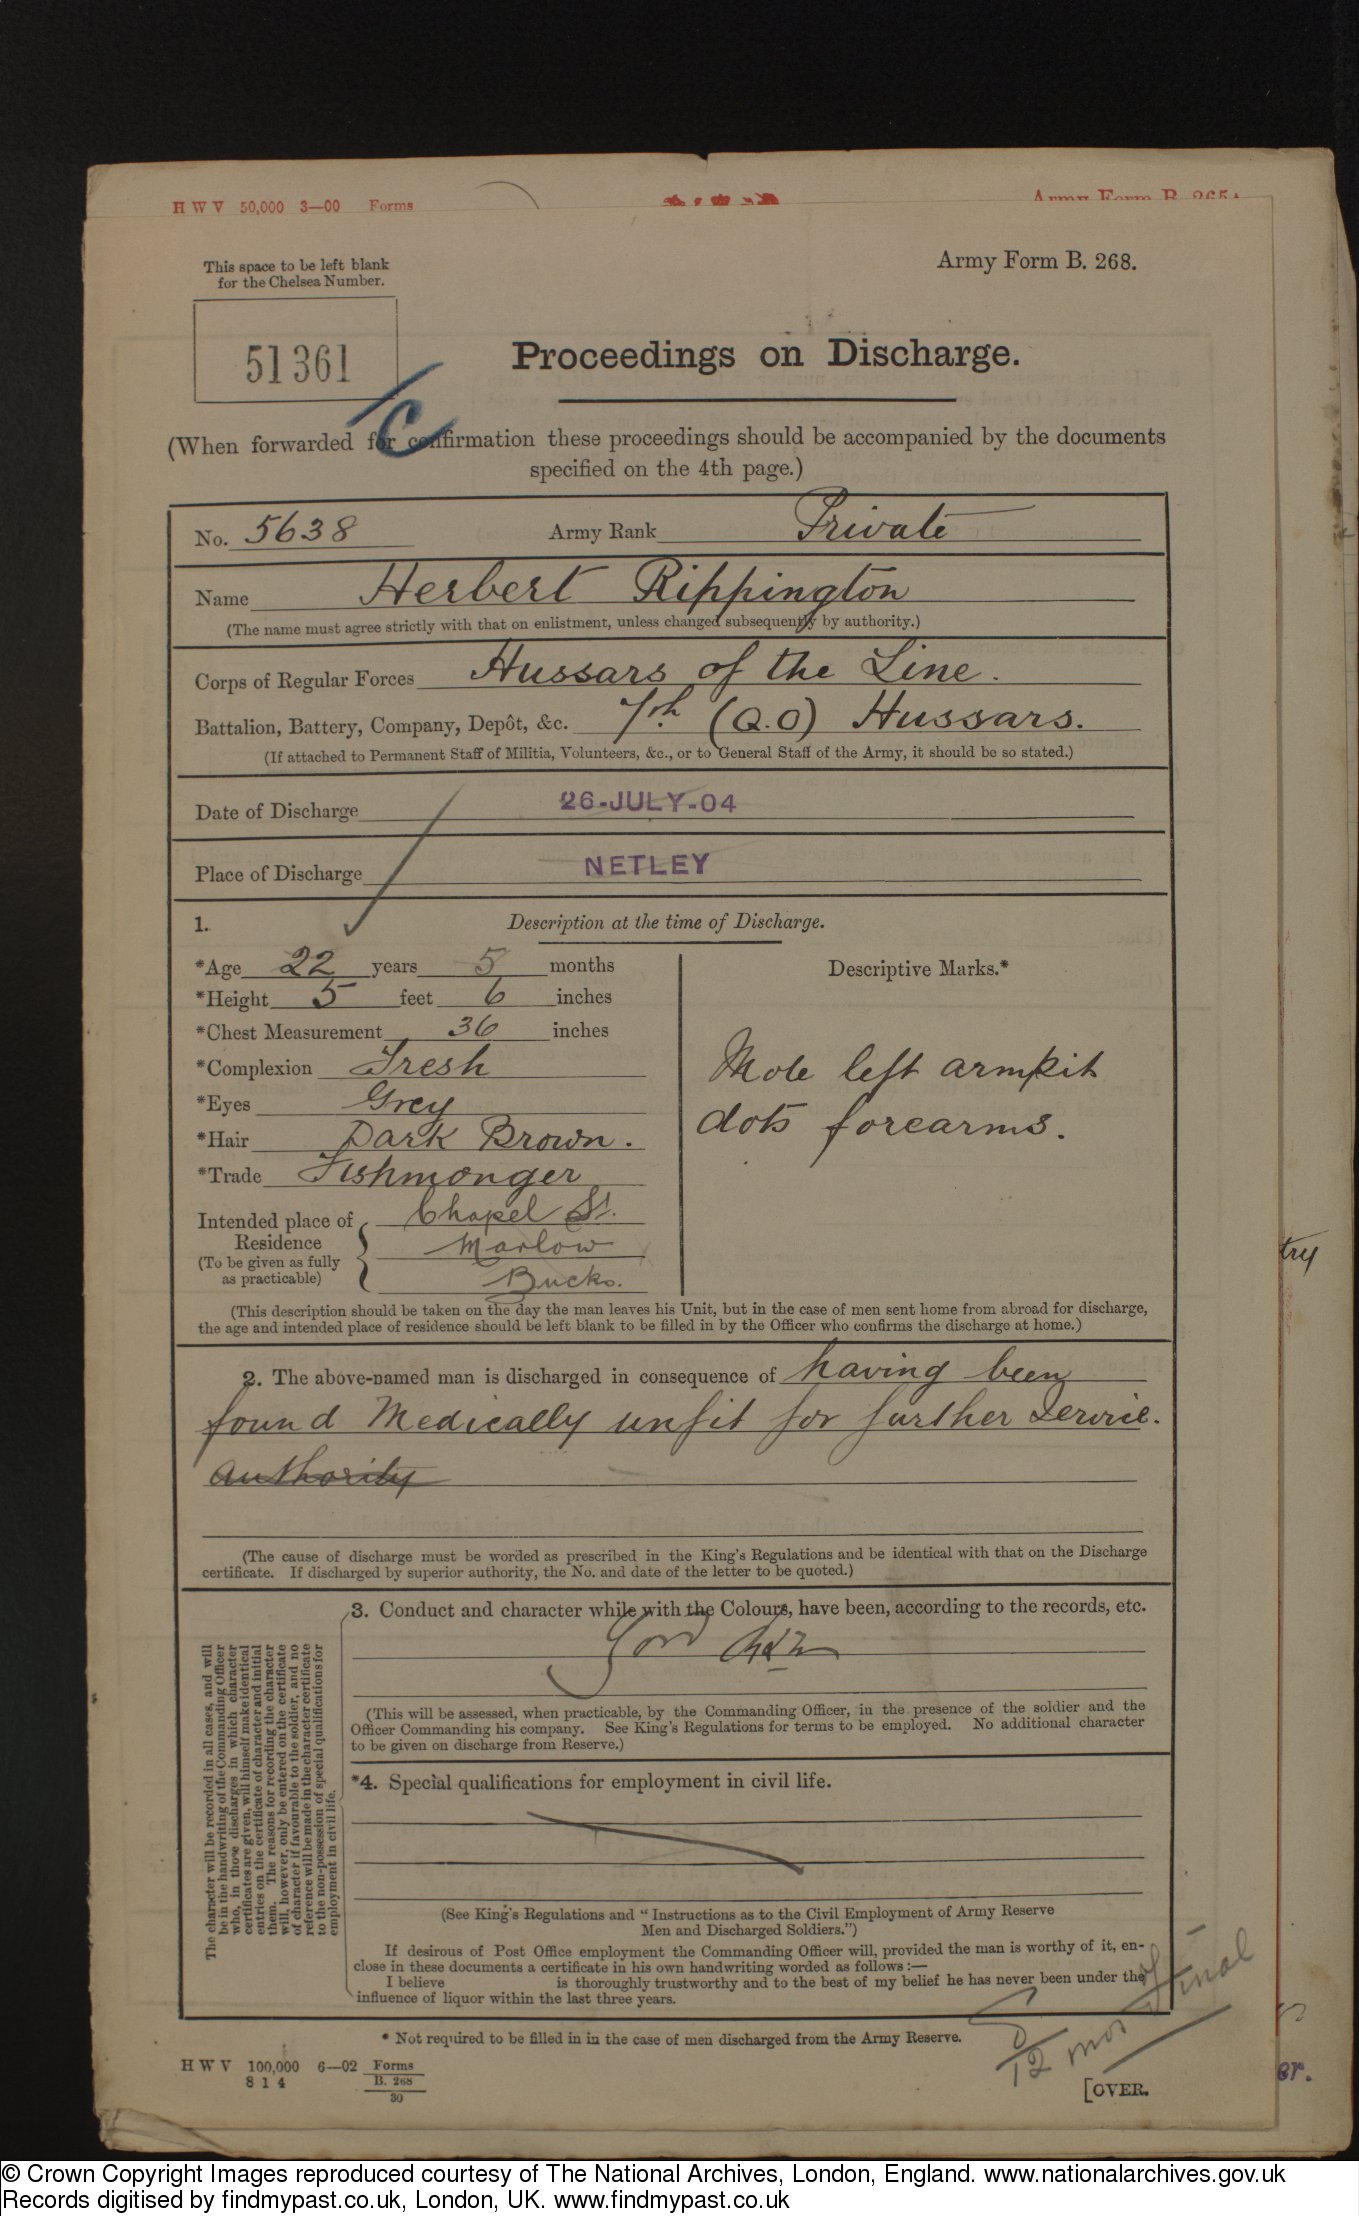 H W V 50,000 3—00 Forms
Army Form B. 265A
This space to be left blank
for the Chelsea Number.
Army Form B. 268.
51361
C
Proceedings on Discharge.
(When forwarded for confirmation these proceedings should be accompanied by the documents
specified on the 4th page.)
No. 5638 Army Rank Private
Name Herbert Rippington
(The name must agree strictly with that on enlistment, unless changed subsequently by authority.)
Corps of Regular Forces Hussars of the Line.
Battalion, Battery, Company, Depôt, &c. 7th (Q.O) Hussars.
(If attached to Permanent Staff of Militia, Volunteers, &c., or to General Staff of the Army, it should be so stated.)
Date of Discharge 26-JULY-04
Place of Discharge NETLEY
1. Description at the time of Discharge.
*Age 22 years 5 months
*Height 5 feet 6 inches
*Chest Measurement 36 inches
*Complexion Fresh
*Eyes Grey
*Hair Dark Brown.
*Trade Fishmonger
Intended place of Residence
(To be given as fully
as practicable)
Chapel St.
Marlow
Bucks.
Descriptive Marks.*
Mole left armpit
dots forearms.
(This description should be taken on the day the man leaves his Unit, but in the case of men sent home from abroad for discharge,
the age and intended place of residence should be left blank to be filled in by the Officer who confirms the discharge at home.)
2. The above-named man is discharged in consequence of having been
found Medically unfit for further Service.
authority
(The cause of discharge must be worded as prescribed in the King's Regulations and be identical with that on the Discharge
certificate. If discharged by superior authority, the No. and date of the letter to be quoted.)
3. Conduct and character while with the Colours, have been, according to the records, etc.
Good
(This will be assessed, when practicable, by the Commanding Officer, in the presence of the soldier and the
Officer Commanding his company. See King's Regulations for terms to be employed. No additional character
to be given on discharge from Reserve.)
The character will be recorded in all cases, and will
be in the handwriting of the Commanding Officer
who, in those discharges in which character
certificates are given, will himself make identical
entries on the certificate of character and initial
them. The reasons for recording the character
will, however, only be entered on the certificate
of character if favourable to the soldier, and no
reference will be made in the character certificate
to the non-possession of special qualifications for
employment in civil life.
*4. Special qualifications for employment in civil life.
(See King's Regulations and "Instructions as to the Civil Employment of Army Reserve
Men and Discharged Soldiers.")
If desirous of Post Office employment the Commanding Officer will, provided the man is worthy of it, en-
close in these documents a certificate in his own handwriting worded as follows:—
I believe is thoroughly trustworthy and to the best of my belief he has never been under the
influence of liquor within the last three years.
* Not required to be filled in in the case of men discharged from the Army Reserve.
12 mos final
H W V 100,000 6—02 Forms
8 1 4 B. 268
30
[OVER.
try
er.
© Crown Copyright Images reproduced courtesy of The National Archives, London, England. www.nationalarchives.gov.uk
Records digitised by findmypast.co.uk, London, UK. www.findmypast.co.uk